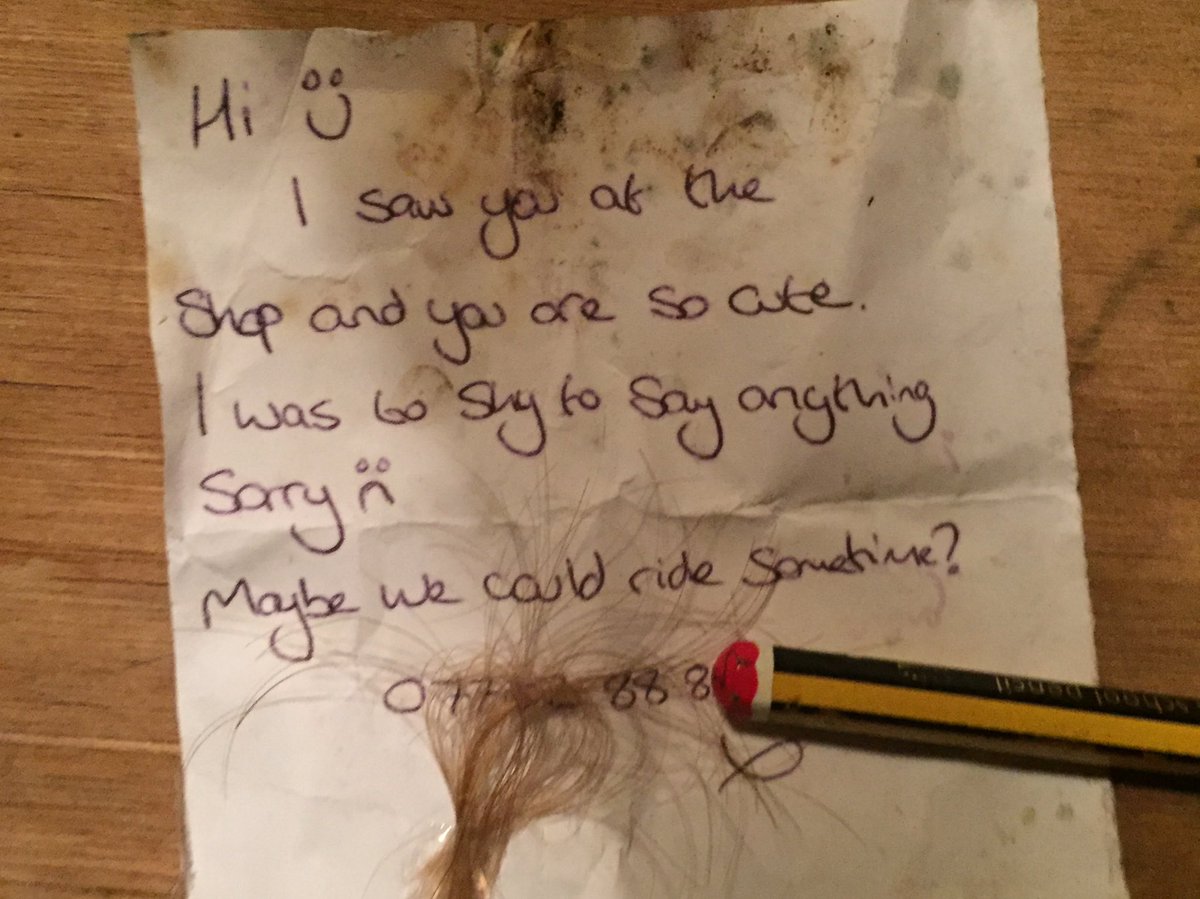 Hi
I saw you at the
Shop and you are so cute.
I was to shy to say anything
Sorry
Maybe we could ride sometime?
077 88 8
school pencil